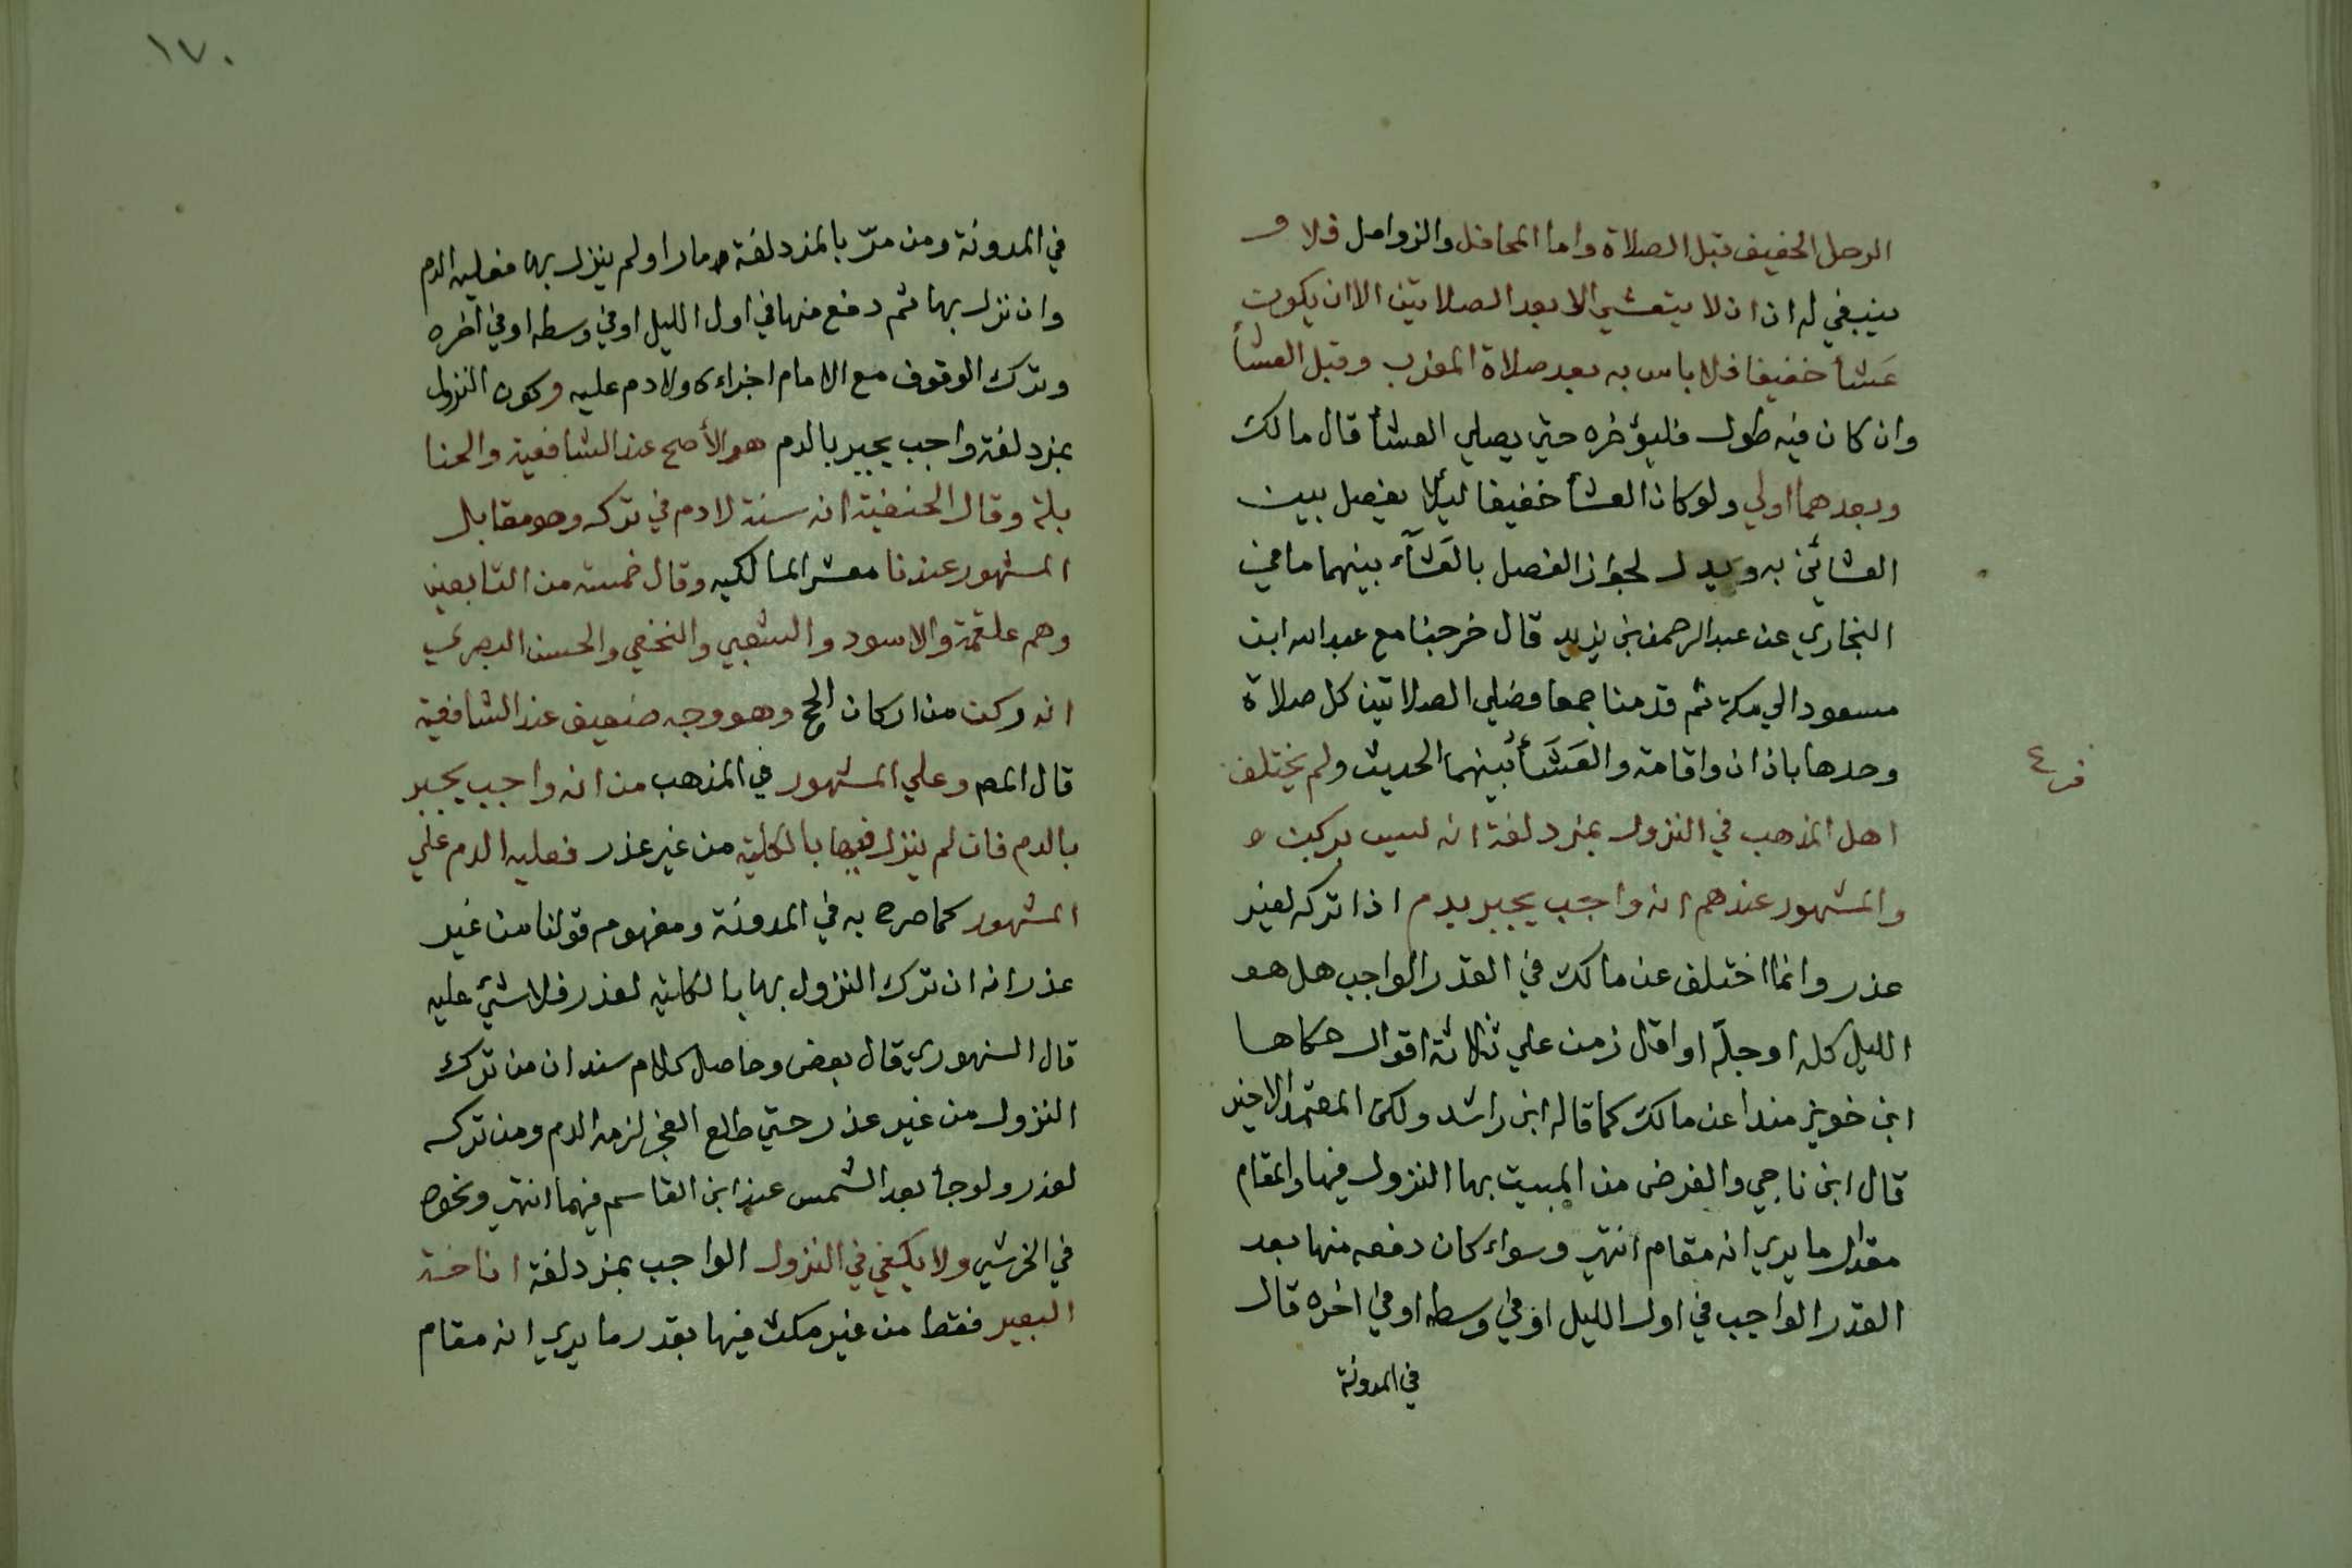 الرحل الخفيف قبل الصلاة واما المحافل والزوامل فلا و
ينبغي له ان ان لا يتعشي الا بعد الصلاتين الا ان يكون
عَشأ خفيفا فلا باس به بعد صلاة المغرب وقبل العشأ
وان كان فيه طول فليؤخره حتي يصلي العشأ قال مالك
وبعدهما اولي ولو كان العشأ خفيفا ليلا يفصل بين
العشائين به ويدل لجواز الفصل بالعَشَآء بينهما ما في
البخاري عن عبد الرحمن بن يزيد قال خرجنا مع عبد الله ابن
مسعود الي مكة ثم قدمنا جمعا فصلي الصلاتين كل صلاة
وحدها باذان واقامة والعَشَأ بينهما الحديث ولم يختلف
فرع
اهل المذهب في النزول بمزدلفة انه ليس بركن و
والمشهور عندهم انه واجب يجبر بدم اذا تركه لغير
عذر وانما اختلف عن مالك في القدر الواجب هل هو
الليل كله او جلّه او اقل زمن علي ثلاثة اقوال حكاها
ابن خويز منداد عن مالك كما قاله ابن راشد ولكن المعتمد الاخير
قال ابن ناجي والفرض من المبيت بها النزول فيها والمقام
مقدار ما يري انه مقام انتهي وسواء كان دفعه منها بعد
القدر الواجب في اول الليل او في وسطه او في اخره قال
في المدونة
١٧٠
في المدونة ومن مرّ بالمزدلفة مارا ولم ينزل بها فعليه الدم
وان نزل بها ثم دفع منها في اول الليل او في وسطه او في اخره
وترك الوقوف مع الامام اجزاءه ولا دم عليه وكون النزول
بمزدلفة واجب يجبر بالدم هو الأصح عند الشافعية والحنا
بلة وقال الحنفية انه سنة لا دم في تركه وهو مقابل
المشهور عندنا معشر المالكيه وقال خمسة من التابعين
وهم علقمة والاسود والشعبي والنخعي والحسن البصري
انه ركن من اركان الحج وهو وجه ضعيف عند الشافعية
قال المص وعلي المشهور في المذهب من انه واجب يجبر
بالدم فان لم ينزل فيها بالكلية من غير عذر فعليه الدم علي
المشهور كما صرح به في المدونة ومفهوم قولنا من غير
عذر انه ان ترك النزول بها بالكلية لعذر فلا شيء عليه
قال السنهوري قال بعض وحاصل كلام سند ان من ترك
النزول من غير عذر حتي طلع الفجر لزمه الدم ومن تركه
لعذر ولو جأ بعد الشمس عند ابن القاسم فيهما انتهي ونحوه
في الخرشي ولا يكفي في النزول الواجب بمزدلفة اناخة
البعير فقط من غير مكث فيها بقدر ما يري انه مقام